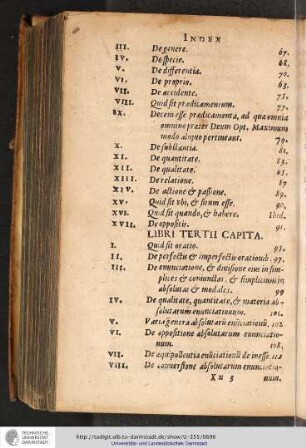 INDEX
III. De genere. 67.
IV. De specie. 68.
V. De differentia. 70.
VI. De proprio. 63.
VII. De accidente. 75.
VIII. Quid sit prædicamentum. 77.
IX. Decem esse prædicamenta, ad quæ omnia
omnino præter Deum Opt. Maximum
modo aliquo pertineant. 79.
X. De substantia. 81.
XI. De quantitate. 83.
XII. De qualitate. 85.
XIII. De relatione. 87.
XIV. De actione & passione. 89.
XV. Quid sit vbi, & situm esse. 90.
XVI. Quid sit quando, & habere. Ibid.
XVII. De oppositis. 91.
LIBRI TERTII CAPITA.
I. Quid sit oratio. 95.
II. De perfectis & imperfectis orationib. 97.
III. De enunciatione, & diuisione eius in sim-
plices & coniunctas, & simplicium in
absolutas & modales. 99
IV. De qualitate, quantitate, & materia ab-
solutarum enunciationum. 101.
V. Varia genera absolutarū enūciationū. 102
VI. De oppositione absolutarum enunciatio-
num. 108.
VII. De æquipollentia enūciationū de inesse. 112
VIII. De conuersione absolutarum enunciatio-
Xx 3 num.
TECHNISCHE
UNIVERSITÄT
DARMSTADT
http://tudigit.ulb.tu-darmstadt.de/show/U-333/0696
Universitäts- und Landesbibliothek Darmstadt